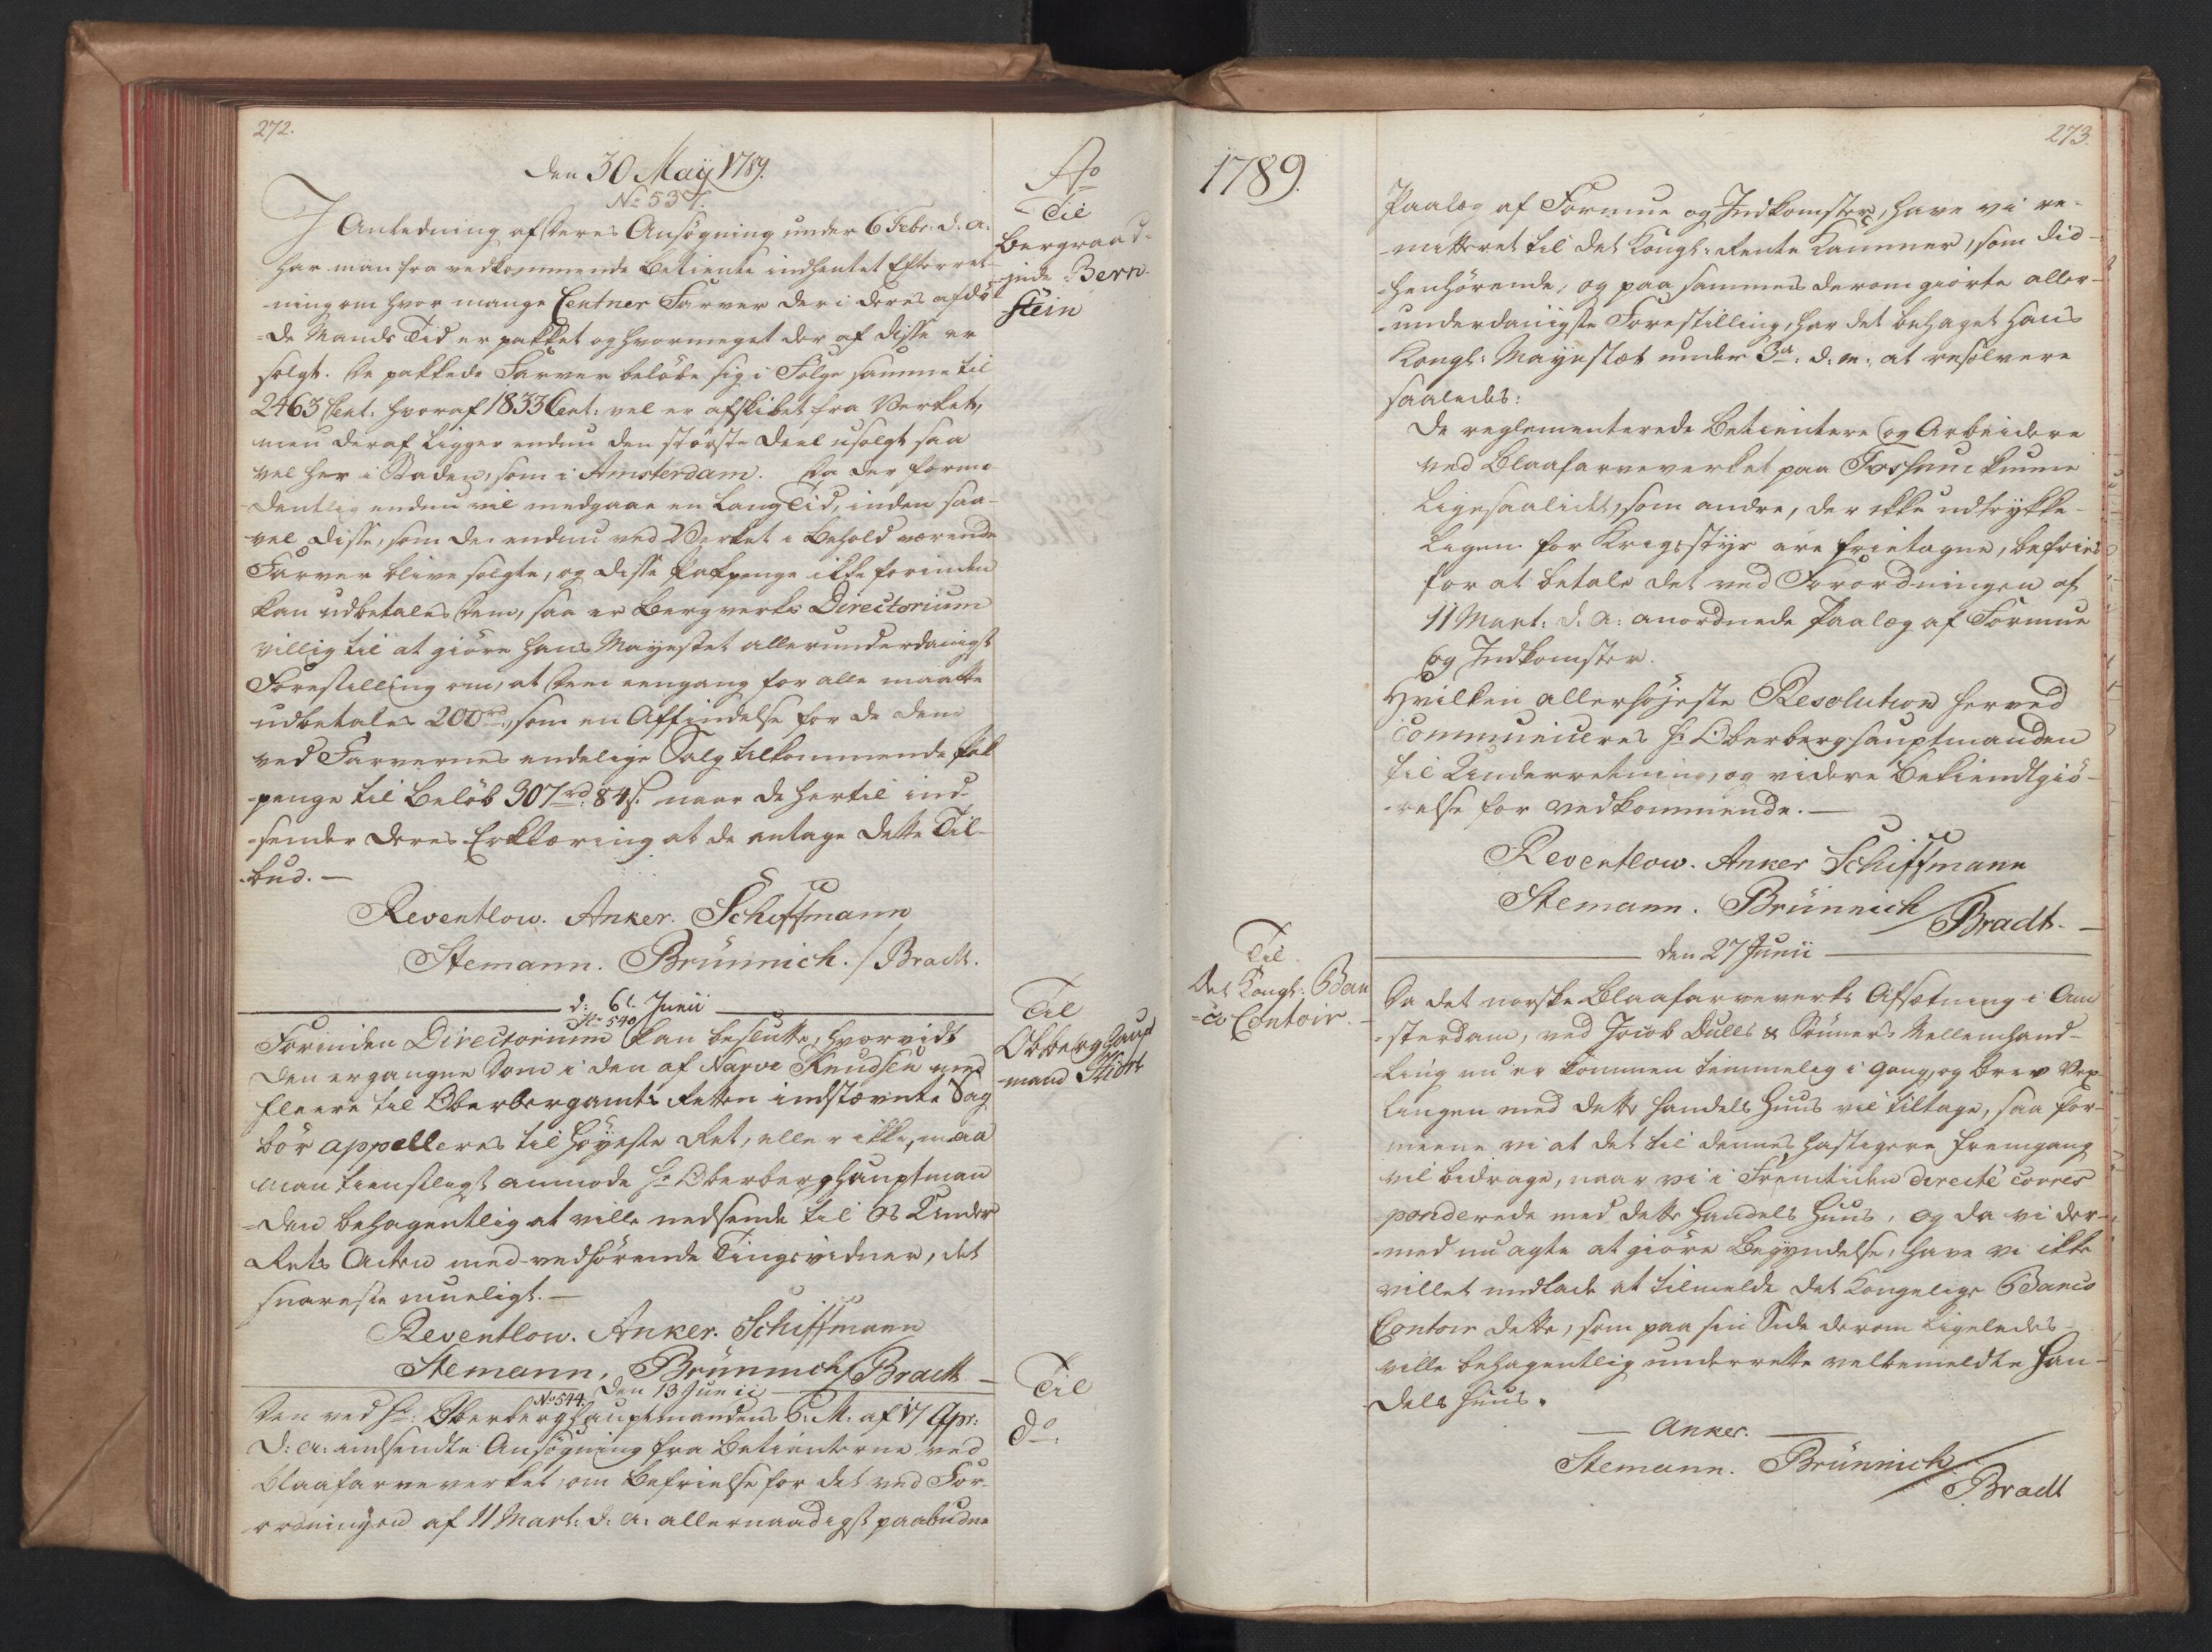 272.
Ao
Den 30 Maÿ 1789.
No 537.
Til
Bergraad-
-inde Bern-
stein
I Anledning af Deres Ansøgning under 6 Febr: d. a.
har man fra vedkommende Betiente indhentet Efterret-
-ning om hvor mange Centner Farver der i Deres afdø-
-de Mands Tid er pakket og hvormeget der af disse er
solgt. De pakkede Farver beløbe sig i Følge samme til
2463 Cent: hvoraf 1833 Cent: vel er afskibet fra Verket,
men deraf ligger endnu den største Deel usolgt saa
vel her i Staden, som i Amsterdam. Da der formo-
-dentlig endnu vil medgaae en lang Tid, inden saa-
vel disse, som de endnu ved Verket i Behold værende
Farver blive solgte, og disse Pakpenge ikke forinden
kan udbetales Dem, saa er Bergverks Directorium
villig til at giøre Hans Mayestet allerunderdanigst
Forestilling om, at Dem eengang for alle maatte
udbetales 200 rd, som en Affindelse for de Dem
ved Farvernes endelige Salg tilkommende Pak-
-penge til Beløb 307 rd 84 s. naar De hertil ind-
-sender Deres Erklæring at de antage dette Til-
-bud. —
Reventlow. Anker. Schiffmann
Stemann. Brünnich. / Bradt.
d: 6t Junii
No 540
Til
Obberghaupt
-mand Hiort
Forinden Directorium kan beslutte, hvorvidt
den ergangne Dom i den af Narve Knudsen med
fleere til Oberbergamts Retten indstævnte Sag
bør appelleres til Høyeste Ret, eller ikke, maa
man tienstligst anmode Hr Oberberghauptman-
-den behagentlig at ville nedsende til os Under
Rets Acten med vedhørende Tingsvidner, det
snareste mueligt. —
Reventlow. Anker. Schiffmann
Stemann, Brünnich / Bradt —
No 544. Den 13 Junii
Til
do:
Den ved Hr: Oberberghauptmandens P. M: af 17 Apr:
d: a: indsendte Ansøgning fra Betienterne ved
Blaafarveverket om Befrielse for det ved For-
ordningen af 11 Mart: d: a: allernaadigst paabudne
1789.
273.
Paalæg af Formue og Indkomster, have vi re-
-mitteret til det Kongl: Rente Kammer, som did-
-henhørende, og paa sammes derom giorte aller-
-underdanigste Forestilling, har det behaget Hans
Kongl: Mayestæt under 3d: d: m: at resolvere
saaledes:
De reglementerede Betientere og Arbeidere
ved Blaafarveverket paa Fossum kunne
ligesaalidet, som andre, der ikke udtrykke-
ligen for Krigsstyr ere frietagne, befries
for at betale det ved Forordningen af
11 Mart: d: a: anordnede Paalæg af Formue
og Indkomster.
Hvilken allerhøjeste Resolution herved
communiceres Hr Oberberghauptmanden
til Underretning, og videre Bekiendtgiø-
-relse for vedkommende. —
Reventlow. Anker Schiffmann
Stemann. Brünnich / Bradt. —
Den 27 Junii
Til
Det Kongl: Ban
-co Contoir.
Da det norske Blaafarveverks Afsætning i Am
-sterdam, ved Jacob Dulls & Sønners Mellemhand-
-ling nu er kommen temmelig i Gang, og Brev Vex-
lingen med dette Handels Huus vil tiltage, saa for-
meene vi at det til dennes hastigere Fremgang
vil bidrage, naar vi i Fremtiden directé corres-
ponderede med dette Handels Huus, og da vi der-
-med nu agte at giøre Begyndelse, have vi ikke
villet undlade at tilmelde det Kongelige Banco
Contoir dette, som paa sin Side derom ligeledes
ville behagentlig underrette velbemeldte Han-
-dels Huus.
— Anker. —
Stemann. Brünnich /
Bradt